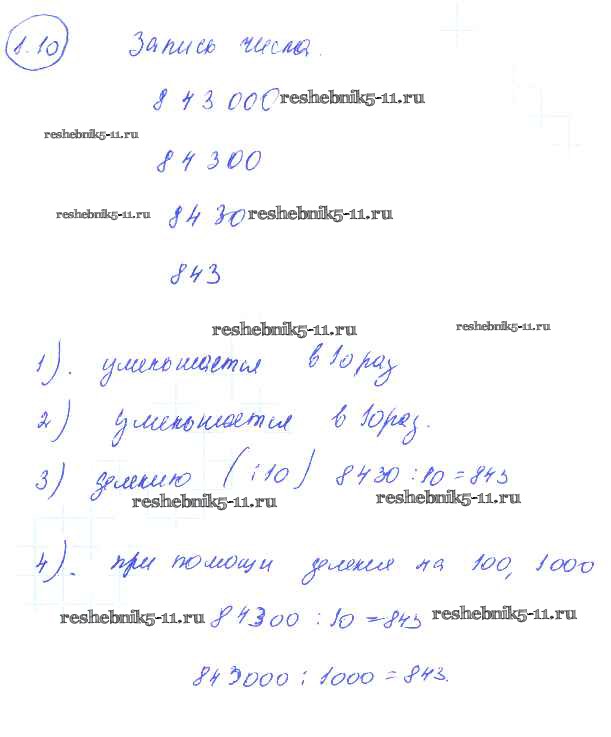 1.10 Запись числа.
843000 reshebnik5-11.ru
reshebnik5-11.ru
84300
reshebnik5-11.ru 8430 reshebnik5-11.ru
843
reshebnik5-11.ru reshebnik5-11.ru
1). уменьшается в 10 раз
2) Уменьшается в 10 раз.
3) делению (:10) 8430:10=843
reshebnik5-11.ru reshebnik5-11.ru
4). при помощи деления на 100, 1000
reshebnik5-11.ru 84300:10=843 reshebnik5-11.ru
843000:1000=843.